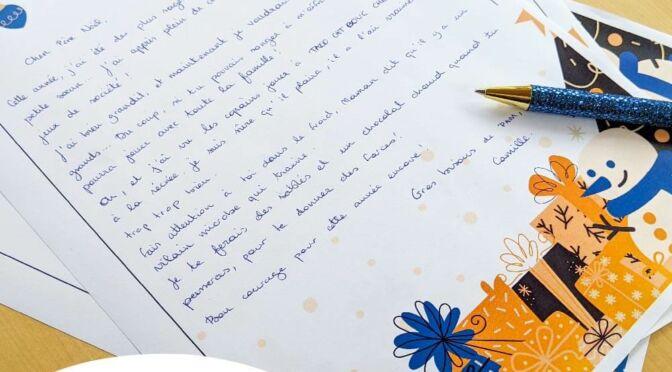 Cher Père Noël,
Cette année, j'ai été des plus sage
petite soeur... j'ai appris plein de
jeux de société!
j'ai bien grandit, et maintenant je voudrais
grands... Du coup, si tu pouvais songer à m'
pourra jouer avec toute la famille!
Ah, et j'ai vu les copains jouer à TARO CAT BOUC
à la récrée je suis sûre qu'il plaira, il a l'air vraiment
trop trop bien.
Fais attention à toi dans le froid, Maman dit qu'il y a un
vilain microbe qui traine.
Je te ferais des sablés et un chocolat chaud quand tu
passeras, pour te donner des forces!
Bon courage pour cette année encore!
Gros bisous de
Camille.